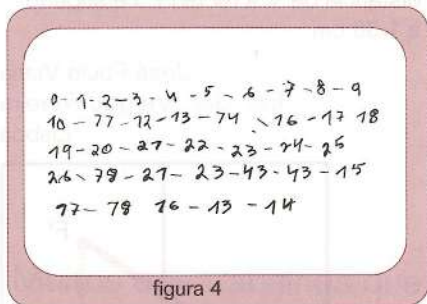 0-1-2-3-4-5-6-7-8-9
10-11-12-13-14 \ 16-17 18
19-20-21-22-23-24-25
26-78-21-23-43-43-15
17-18 16-13-14
figura 4